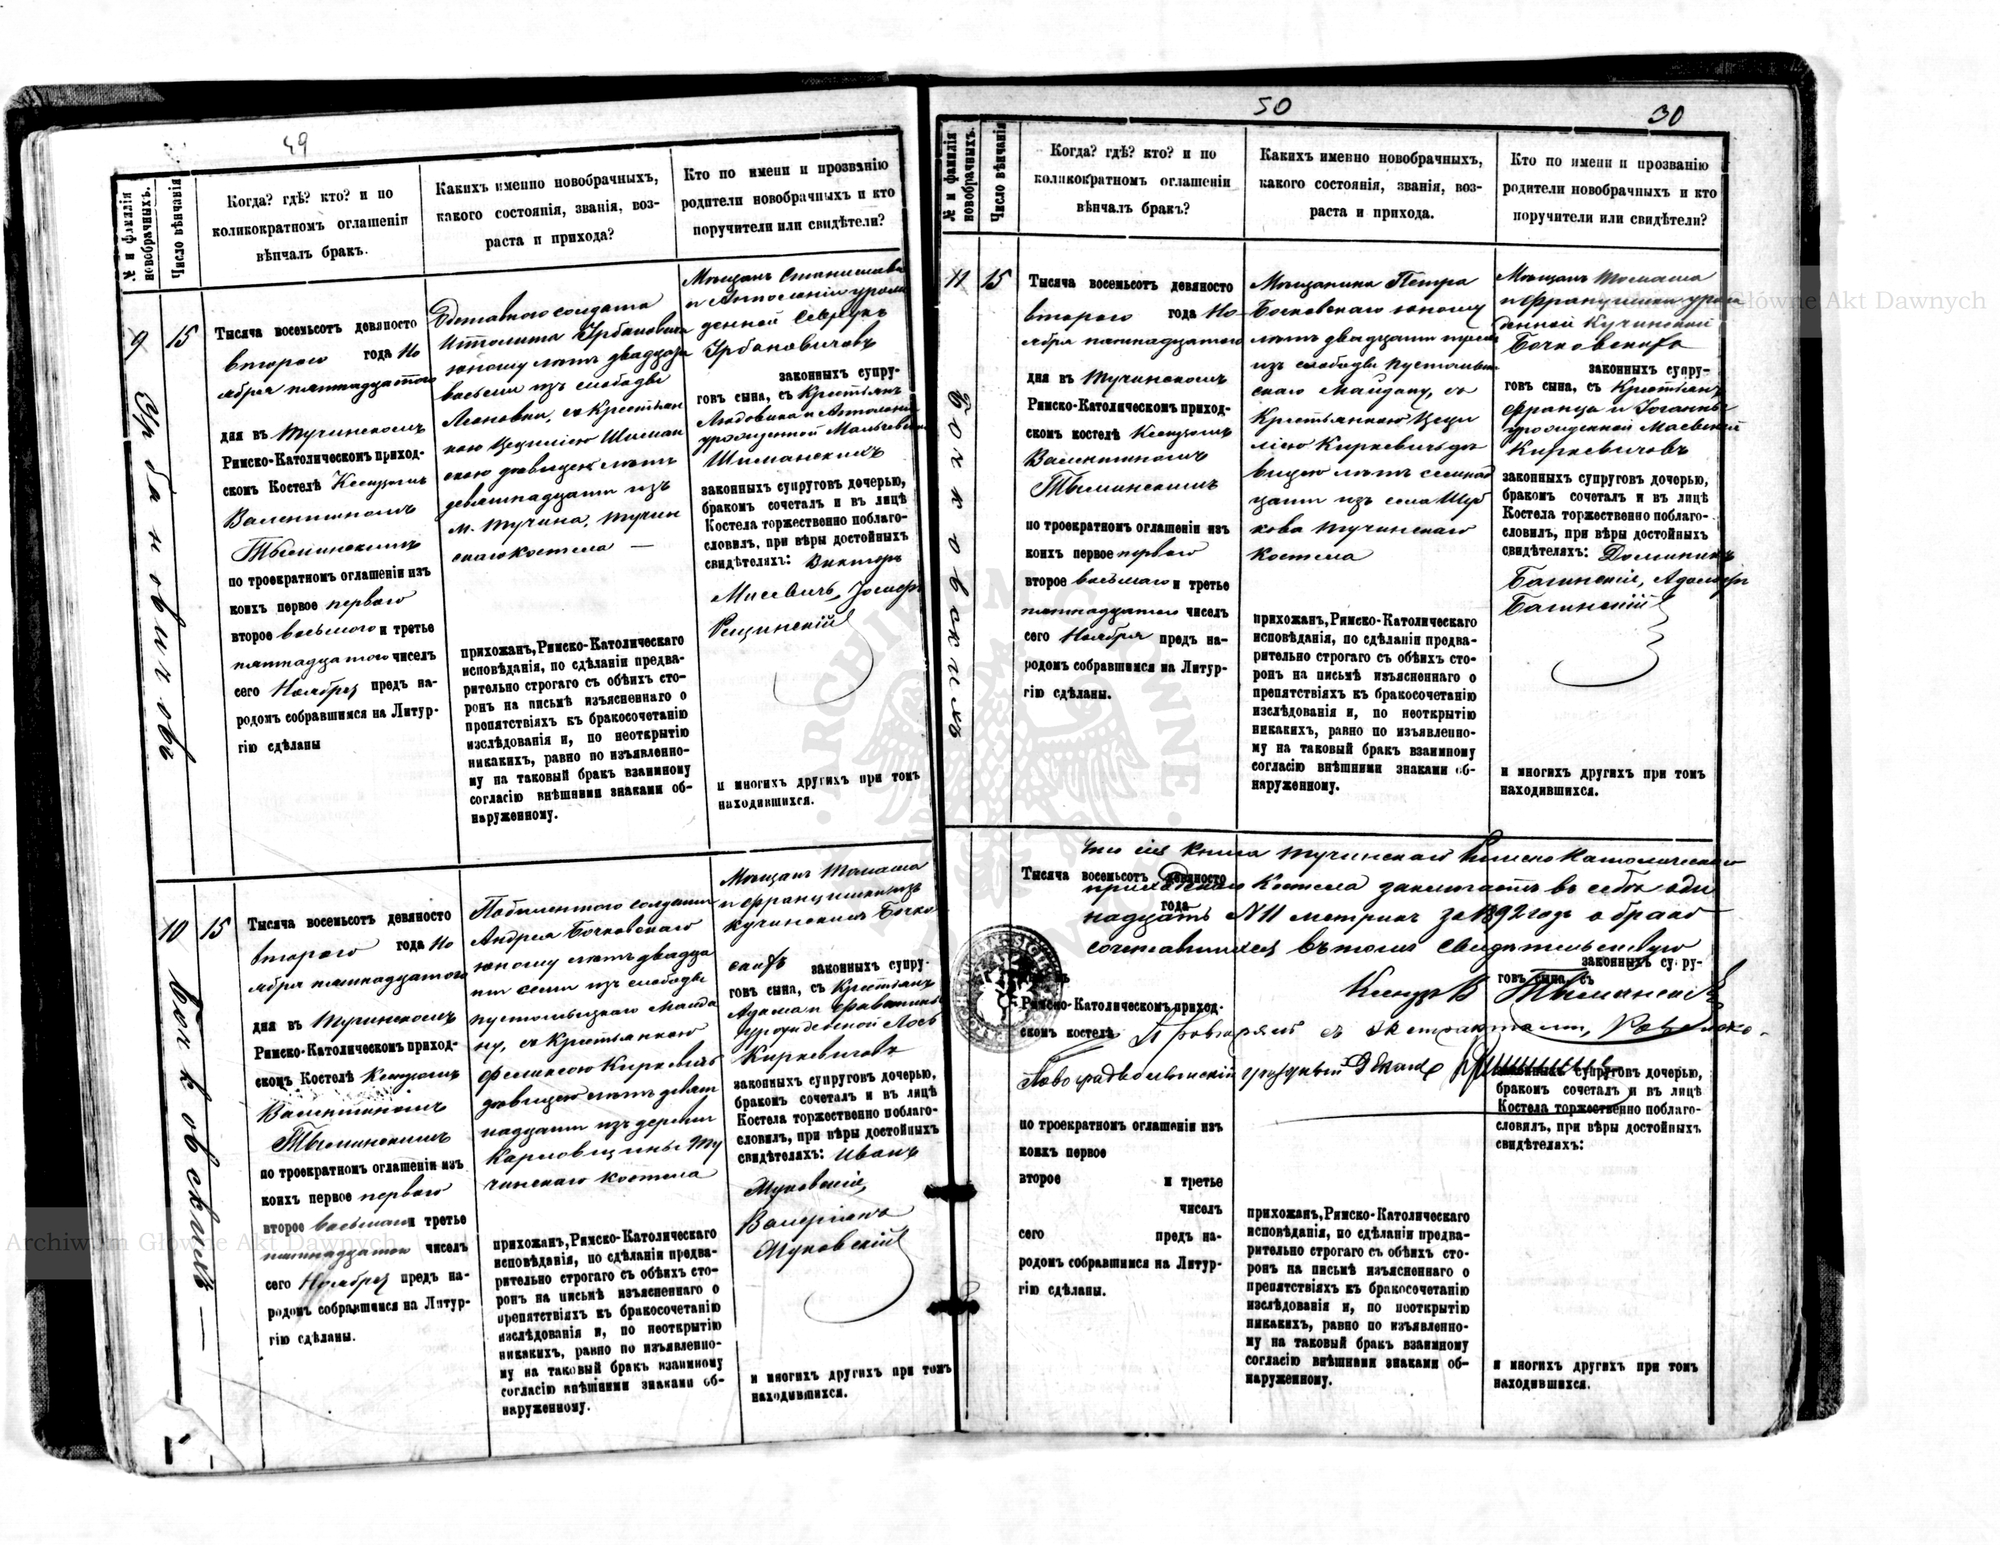 49
№ и фамилія новобрачныхъ.
Число вѣнчанія
Когда? гдѣ? кто? и по
коликократномъ оглашеніи
вѣнчалъ бракъ.
Какихъ именно новобрачныхъ,
какого состоянія, званія, воз-
раста и прихода?
Кто по имени и прозванію
родители новобрачныхъ и кто
поручители или свидѣтели?
9
Урбановичовъ
15
Тысяча восемьсотъ девяносто
второго года Но
ября пятнадцатого
дня въ Тучинскомъ
Римско-Католическомъ приход-
скомъ Костелѣ Ксендзомъ
Валентиномъ
Тыминскимъ
по троекратномъ оглашеніи изъ
коихъ первое первого
второе восьмого и третье
пятнадцатого чиселъ
сего Ноября предъ на-
родомъ собравшимся на Литур-
гію сдѣланы
Отставного солдата
Ипполита Урбановича
юношу лѣтъ двадцати
восьми изъ слободы
Леоновки, съ Крестьян
кою Цецилiею Шиман
скою дѣвицею лѣтъ
девятнадцати изъ
м. Тучина, Тучин
скаго костела —
прихожанъ, Римско-Католическаго
исповѣданія, по сдѣланіи предва-
рительно строгаго съ обѣихъ сто-
ронъ на письмѣ изъясненнаго о
препятствіяхъ къ бракосочетанію
изслѣдованія и, по неоткрытію
никакихъ, равно по изъявленно-
му на таковый бракъ взаимному
согласію внѣшними знаками об-
наруженному.
Мѣщанъ Станислава
и Антоніи урож
денной Севрукъ
Урбановичовъ
законныхъ супру-
говъ сына, съ Крестьянъ
Людовика и Антонины
урожденной
Шиманскихъ
законныхъ супруговъ дочерью,
бракомъ сочеталъ и въ лицѣ
Костела торжественно поблаго-
словилъ, при вѣры достойныхъ
свидѣтеляхъ: Викторъ
Мисевичъ, Іосифъ
Рещинскій
и многихъ другихъ при томъ
находившихся.
10
Бочковскихъ —
15
Тысяча восемьсотъ девяносто
второго года Но
ября пятнадцатого
дня въ Тучинскомъ
Римско-Католическомъ приход-
скомъ Костелѣ Ксендзомъ
Валентиномъ
Тыминскимъ
по троекратномъ оглашеніи изъ
коихъ первое первого
второе восьмаго и третье
пятнадцатого чиселъ
сего Ноября предъ на-
родомъ собравшимся на Литур-
гію сдѣланы.
солдата
Андрея Бочковскаго
юношу лѣтъ двадца
ти семи изъ слободы
Пустомытскаго Майда
ну, съ Крестьянкою
Феликсою Киркевичъ
дѣвицею лѣтъ девят
надцати изъ деревни
Карловщины Ту
чинскаго костела
прихожанъ, Римско-Католическаго
исповѣданія, по сдѣланіи предва-
рительно строгаго съ обѣихъ сто-
ронъ на письмѣ изъясненнаго о
препятствіяхъ къ бракосочетанію
изслѣдованія и, по неоткрытію
никакихъ, равно по изъявленно-
му на таковый бракъ взаимному
согласію внѣшними знаками об-
наруженному.
Мѣщанъ Томаша
и Францишки изъ
Кучинскихъ Бочко
скихъ законныхъ супру-
говъ сына, съ Крестьянъ
Адама и
урожденной Лось
Киркевичовъ
законныхъ супруговъ дочерью,
бракомъ сочеталъ и въ лицѣ
Костела торжественно поблаго-
словилъ, при вѣры достойныхъ
свидѣтеляхъ: Иванъ
Жуковскій,
Валеріанъ
Жуковскій
и многихъ другихъ при томъ
находившихся.
50
30
№ и фамилія новобрачныхъ.
Число вѣнчанія
Когда? гдѣ? кто? и по
коликократномъ оглашеніи
вѣнчалъ бракъ?
Какихъ именно новобрачныхъ,
какого состоянія, званія, воз-
раста и прихода.
Кто по имени и прозванію
родители новобрачныхъ и кто
поручители или свидѣтели?
11
Бочковскихъ
15
Тысяча восемьсотъ девяносто
второго года Но-
ября пятнадцатого
дня въ Тучинскомъ
Римско-Католическомъ приход-
скомъ костелѣ Ксендзомъ
Валентиномъ
Тыминскимъ
по троекратномъ оглашеніи изъ
коихъ первое первого
второе восьмаго и третье
пятнадцатого чиселъ
сего Ноября предъ на-
родомъ собравшимся на Литур-
гію сдѣланы.
Мѣщанина Петра
Бочковскаго юношу
лѣтъ двадцати трехъ
изъ слободы Пустомыт
скаго Майдану, съ
Крестьянкою Цеци
ліею Киркевичъ дѣ
вицею лѣтъ семнад
цати изъ села Шуб
кова Тучинскаго
Костела
прихожанъ, Римско-Католическаго
исповѣданія, по сдѣланіи предва-
рительно строгаго съ обѣихъ сто-
ронъ на письмѣ изъясненнаго о
препятствіяхъ къ бракосочетанію
изслѣдованія и, по неоткрытію
никакихъ, равно по изъявленно-
му на таковый бракъ взаимному
согласію внѣшними знаками об-
наруженному.
Мѣщанъ Томаша
и Францишки урож
денной Кучинской
Бочковскихъ
законныхъ супру-
говъ сына, съ Крестьянъ
Франца и Іоанны
урожденной Маевской
Киркевичовъ
законныхъ супруговъ дочерью,
бракомъ сочеталъ и въ лицѣ
Костела торжественно поблаго-
словилъ, при вѣры достойныхъ
свидѣтеляхъ: Доминикъ
Багинскій, Адольфъ
Багинскій
и многихъ другихъ при томъ
находившихся.
Что сія книга Тучинскаго Римско Католическаго
Тысяча восемьсотъ девяносто
приходскаго Костела заключаетъ въ себѣ оди
года
надцать N 11 метрикъ за 1892 годъ о брако
сочетавшихся въ томъ свидѣтельствую
законныхъ супру-
говъ сына, съ
Ксендзъ В Тыминскій
Римско-Католическомъ приход-
скомъ костелѣ
Провѣрялъ съ экстрактами, Ровенско-
Новоградволынскій Деканъ
законныхъ супруговъ дочерью,
бракомъ сочеталъ и въ лицѣ
Костела торжественно поблаго-
словилъ, при вѣры достойныхъ
свидѣтеляхъ:
по троекратномъ оглашеніи изъ
коихъ первое
второе и третье
чиселъ
сего предъ на-
родомъ собравшимся на Литур-
гію сдѣланы.
прихожанъ, Римско-Католическаго
исповѣданія, по сдѣланіи предва-
рительно строгаго съ обѣихъ сто-
ронъ на письмѣ изъясненнаго о
препятствіяхъ къ бракосочетанію
изслѣдованія и, по неоткрытію
никакихъ, равно по изъявленно-
му на таковый бракъ взаимному
согласію внѣшними знаками об-
наруженному.
и многихъ другихъ при томъ
находившихся.
ARCHIWUM GŁÓWNE
Główne Akt Dawnych
Archiwum Główne Akt Dawnych